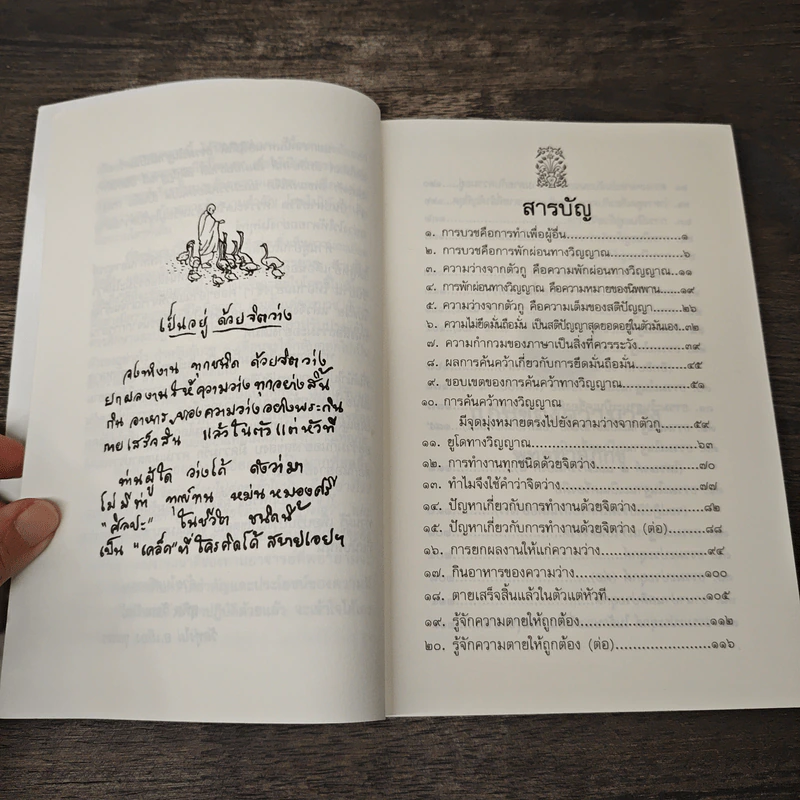 เป็นอยู่ ด้วยจิตว่าง
จงทำงาน ทุกชนิด ด้วยจิตว่าง
ยกผลงาน ให้ความว่าง ทุกอย่างสิ้น
กินอาหาร ของความว่าง อย่างพระกิน
ตายเสร็จสิ้น แล้วในตัว แต่หัวที
ท่านผู้ใด ว่างได้ ดังว่ามา
ไม่มีท่า ทุกข์ทน หม่นหมองศรี
"ศิลปะ" ในชีวิต ชนิดนี้
เป็น "เคล็ด" ที่ ใครคิดได้ สบายเอยฯ
สารบัญ
๑. การบวชคือการทำเพื่อผู้อื่น.....๑
๒. การบวชคือการพักผ่อนทางวิญญาณ.....๖
๓. ความว่างจากตัวกู คือความพักผ่อนทางวิญญาณ..๑๑
๔. การพักผ่อนทางวิญญาณ คือความหมายของนิพพาน...๑๙
๕. ความว่างจากตัวกู คือความเต็มของสติปัญญา.....๒๖
๖. ความไม่ยึดมั่นถือมั่น เป็นสติปัญญาสุดยอดอยู่ในตัวมันเอง..๓๒
๗. ความกำกวมของภาษาเป็นสิ่งที่ควรระวัง.....๓๙
๘. ผลการค้นคว้าเกี่ยวกับการยึดมั่นถือมั่น.....๔๕
๙. ขอบเขตของการค้นคว้าทางวิญญาณ.....๕๑
๑๐. การค้นคว้าทางวิญญาณ
มีจุดมุ่งหมายตรงไปยังความว่างจากตัวกู.....๕๙
๑๑. ยูโดทางวิญญาณ.....๖๓
๑๒. การทำงานทุกชนิดด้วยจิตว่าง.....๗๐
๑๓. ทำไมจึงใช้คำว่าจิตว่าง.....๗๗
๑๔. ปัญหาเกี่ยวกับการทำงานด้วยจิตว่าง.....๘๒
๑๕. ปัญหาเกี่ยวกับการทำงานด้วยจิตว่าง (ต่อ)....๘๘
๑๖. การยกผลงานให้แก่ความว่าง.....๙๔
๑๗. กินอาหารของความว่าง.....๑๐๐
๑๘. ตายเสร็จสิ้นแล้วในตัวแต่หัวที.....๑๐๕
๑๙. รู้จักความตายให้ถูกต้อง.....๑๑๒
๒๐. รู้จักความตายให้ถูกต้อง (ต่อ).....๑๑๖